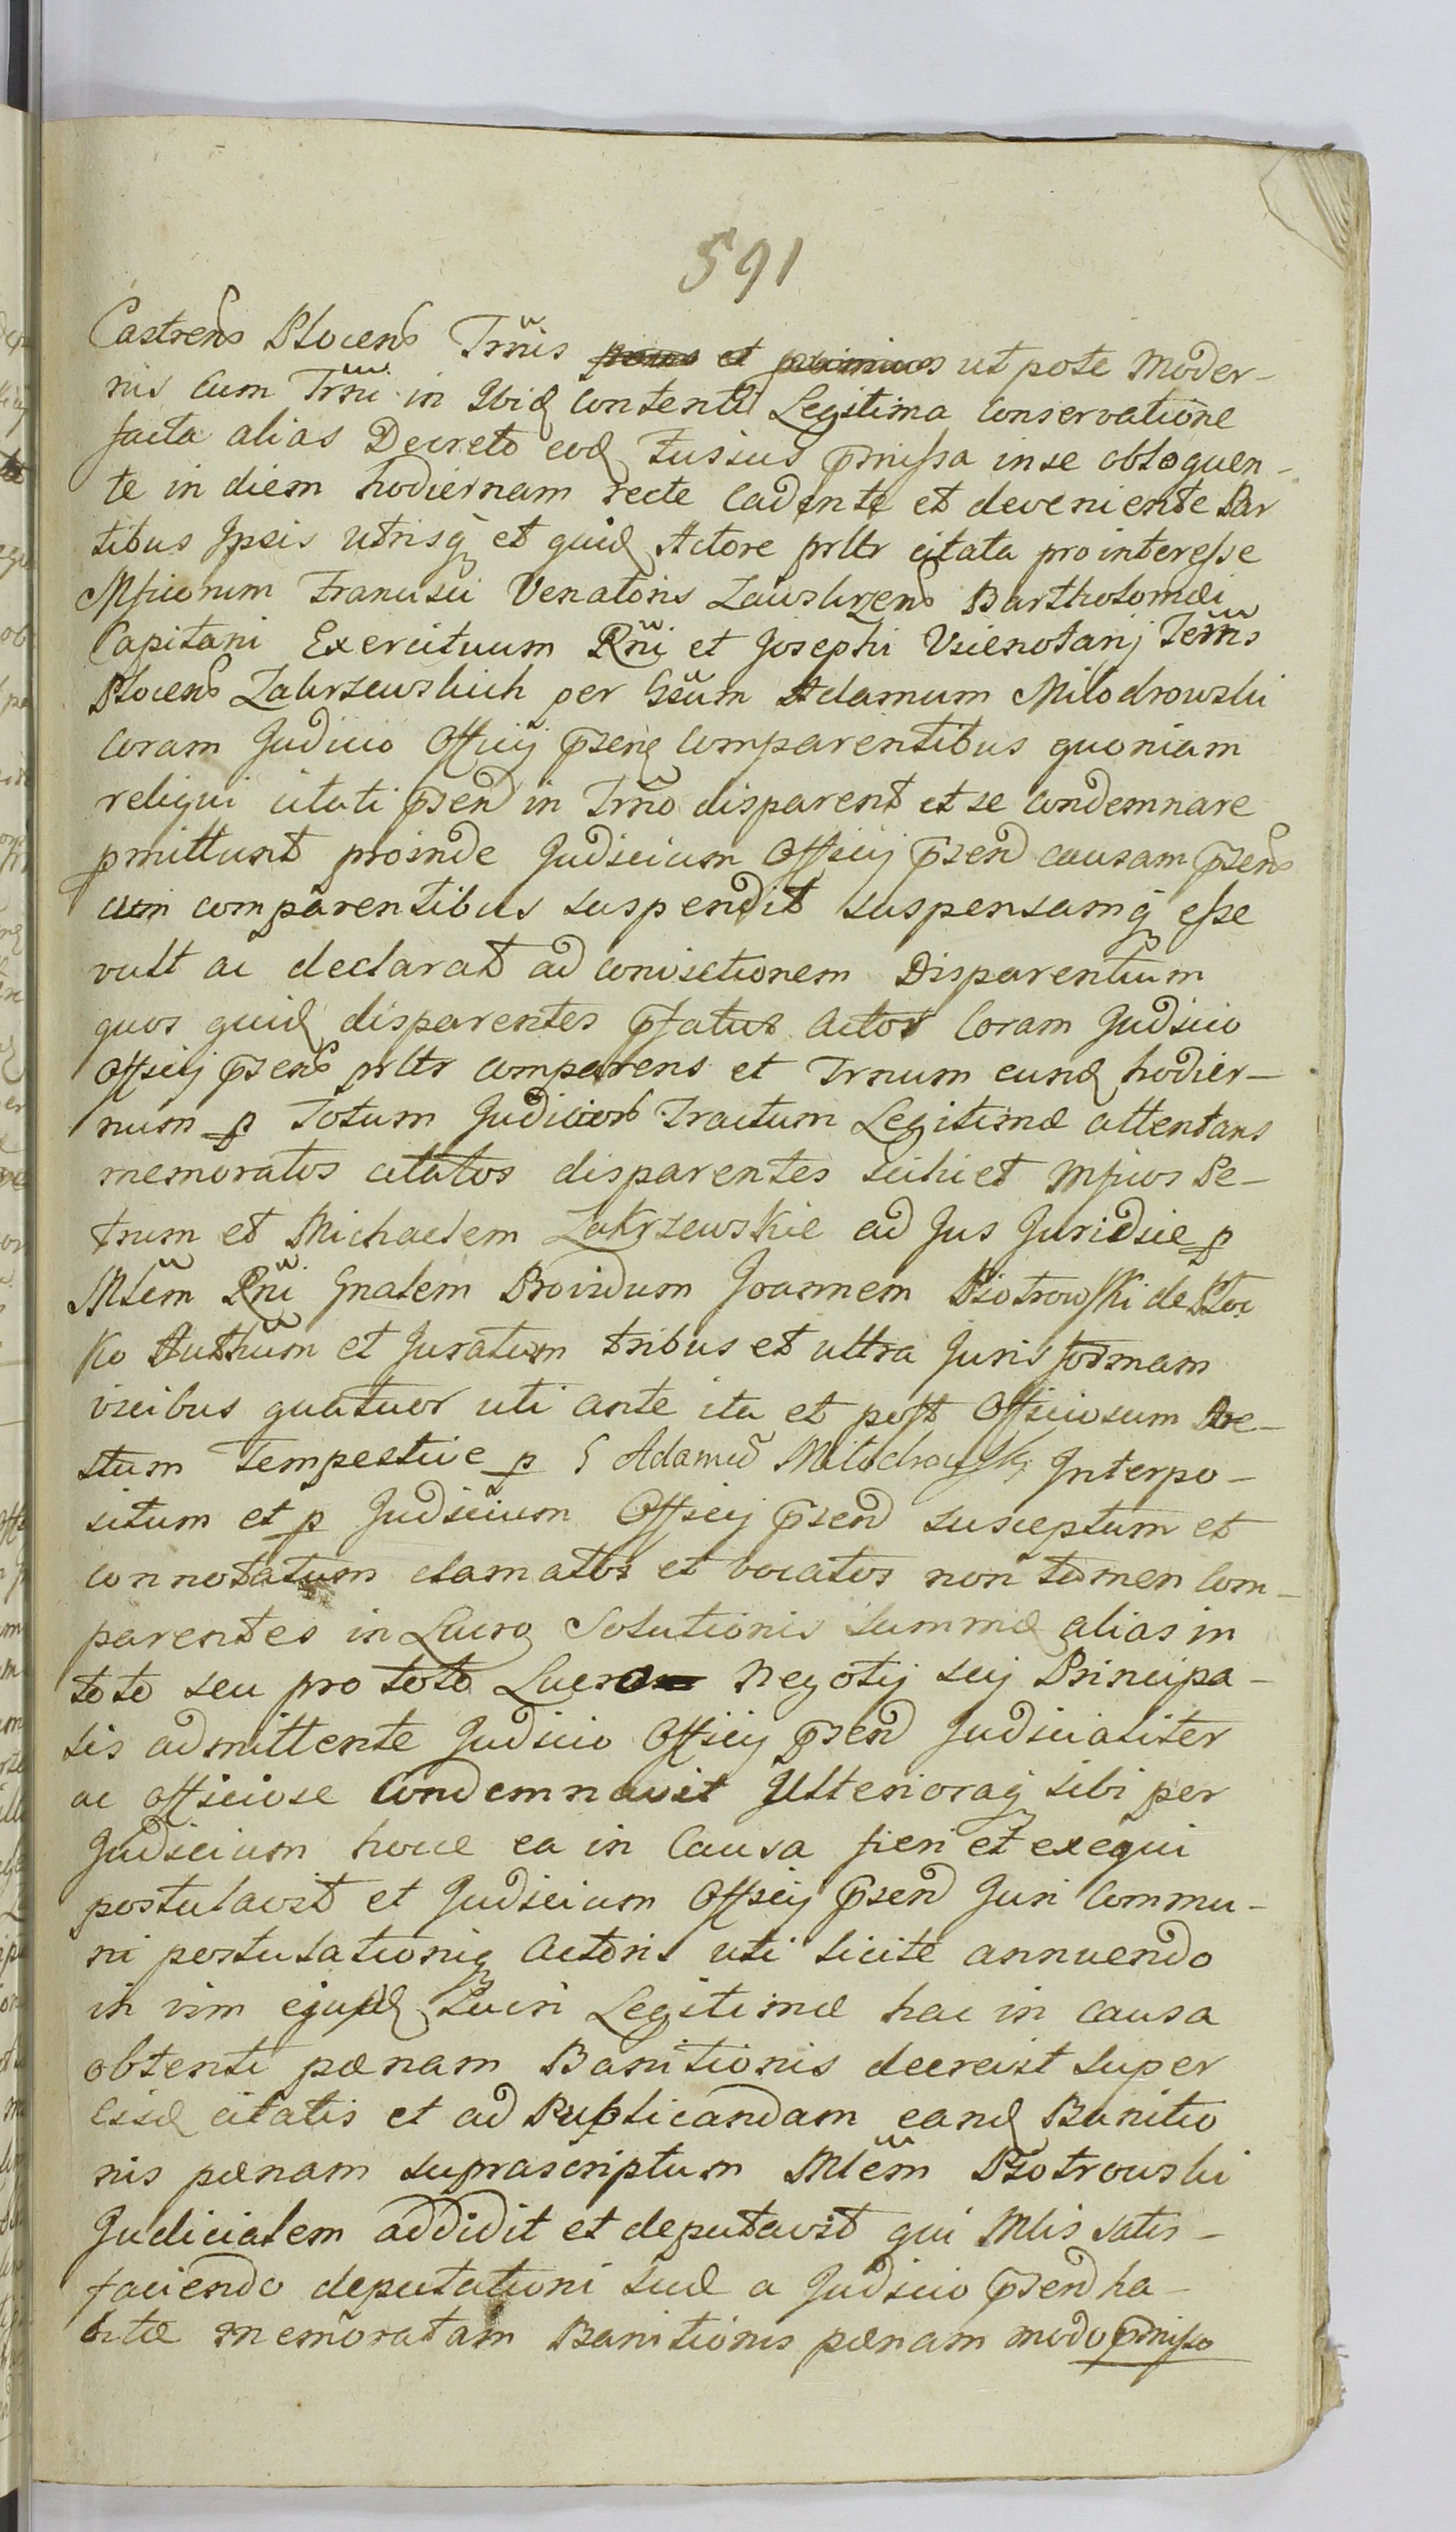 591
Castrens Plocens Trñis ut pote moder-
nis cum Trñi in Ibiq contenti Legitima conservatione
facta alias Decreto eod fusius p̄missa in se obloquen-
te in diem hodiernam recte cadente et deveniente Par
tibus Ipsis utrisq et quid Actore prltr citata pro interesse
Mficorum Francisci Venatoris Zawskrzens Bartholomæi
Capitani Exercituum Rñi et Josephi Vicenotarij Terrñs
Plocens Zakrzewskich per Gsũm Adamum Milodrowski
coram Judicio Officij p̄sens comparentibus quoniam
reliqui citati p̄send in Trñõ disparent et se condemnare
pmittunt proinde Judicium Officij p̄send causam p̄sens
cum comparentibus suspendit suspensamq esse
vult ac declarat ad convictionem Disparentium
quos quid disparentes p̄fatus Actor Coram Judicio
Officij p̄sens prltr comparens et Trnum eund hodier-
num p Totum Judiciorb Tractum Legitimæ attentans
memoratos citatos disparentes scilicet Mficos Pe-
trum et Michaelem Zakrzewskie ad Jus Juridice p
Mlẽm Rñi Gnalem Providum Joannem Piotrowski de Ploc
ko Authũm et Juratum tribus et ultra Juris formam
vicibus quatuor uti ante ita et post Officiosum Are-
stum Tempestive p G Adamũ Milodrowski Interpo-
situm et p Judicium Officij p̄send susceptum et
connotatum clamatos et vocatos non tamen com-
parentes in Lucro Solutionis summæ alias in
toto seu pro toto Lucro Negotij sui Principa-
lis admittente Judicio Officij p̄send Judicialiter
ac officiose Condemnavit Ulterioraq sibi per
Judicium hocce ea in Causa fieri et exequi
postulavit et Judicium Officij p̄send Juri Commu-
ni postulationiq Actoris uti licitæ annuendo
in vim ejusd Lucri Legitimæ hac in causa
obtenti pænam Banitionis decrevit super
Eisd citatis et ad Publicandam eand Banitio
nis pænam suprascriptum Mlẽm Piotrowski
Judicialem addidit et deputavit qui Mlis satis-
faciendo deputationi suæ a Judicio p̄send ha-
bitæ memoratam Banitionis pænam modo p̄misso